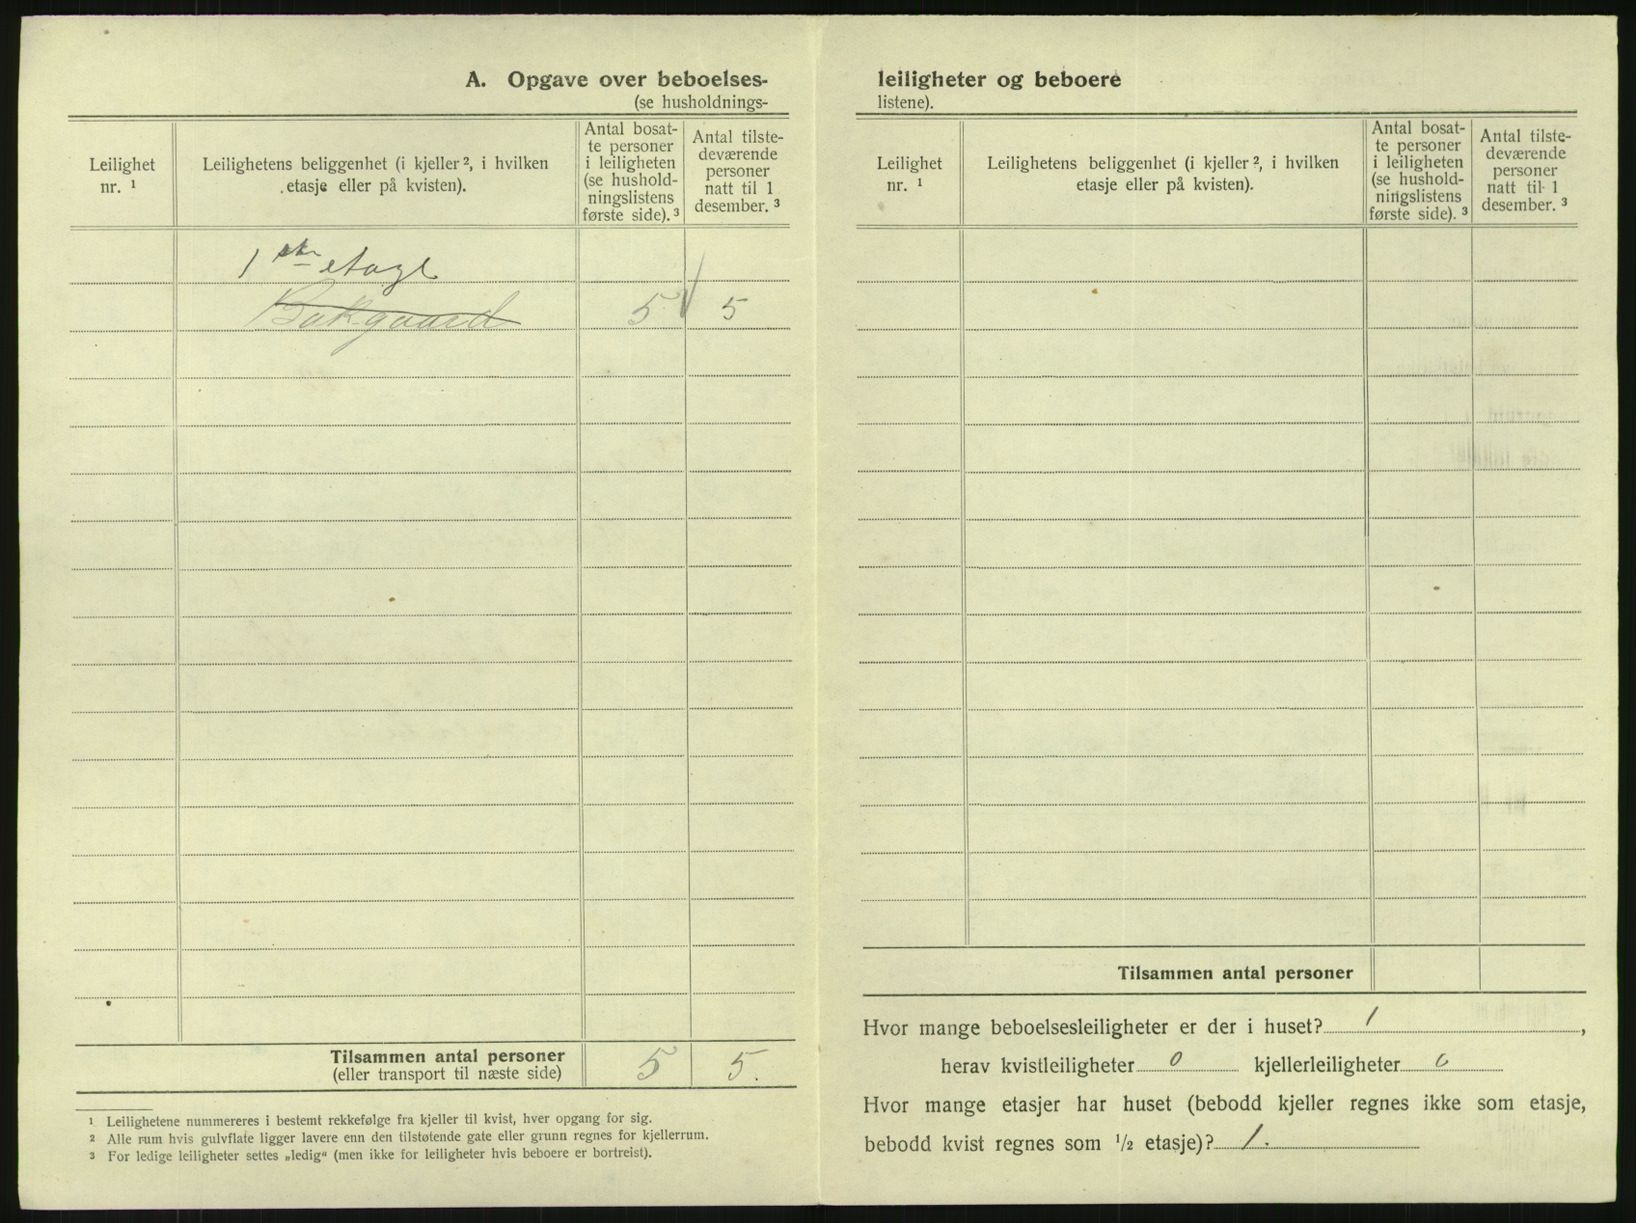 A. Opgave over beboelses-
(se husholdnings-
Leilighet
nr. ¹
Leilighetens beliggenhet (i kjeller ², i hvilken
etasje eller på kvisten).
Antal bosat-
te personer
i leiligheten
(se hushold-
ningslistens
første side). ³
Antal tilste-
deværende
personer
natt til 1
desember. ³
1ste etage
Bakgaard 5 5
Tilsammen antal personer 5 5.
(eller transport til næste side)
¹ Leilighetene nummereres i bestemt rekkefølge fra kjeller til kvist, hver opgang for sig.
² Alle rum hvis gulvflate ligger lavere enn den tilstøtende gate eller grunn regnes for kjellerrum.
³ For ledige leiligheter settes „ledig“ (men ikke for leiligheter hvis beboere er bortreist).
leiligheter og beboere
listene).
Leilighet
nr. ¹
Leilighetens beliggenhet (i kjeller ², i hvilken
etasje eller på kvisten).
Antal bosat-
te personer
i leiligheten
(se hushold-
ningslistens
første side). ³
Antal tilste-
deværende
personer
natt til 1
desember. ³
Tilsammen antal personer
Hvor mange beboelsesleiligheter er der i huset? 1,
herav kvistleiligheter 0 kjellerleiligheter 0
Hvor mange etasjer har huset (bebodd kjeller regnes ikke som etasje,
bebodd kvist regnes som ½ etasje)? 1.